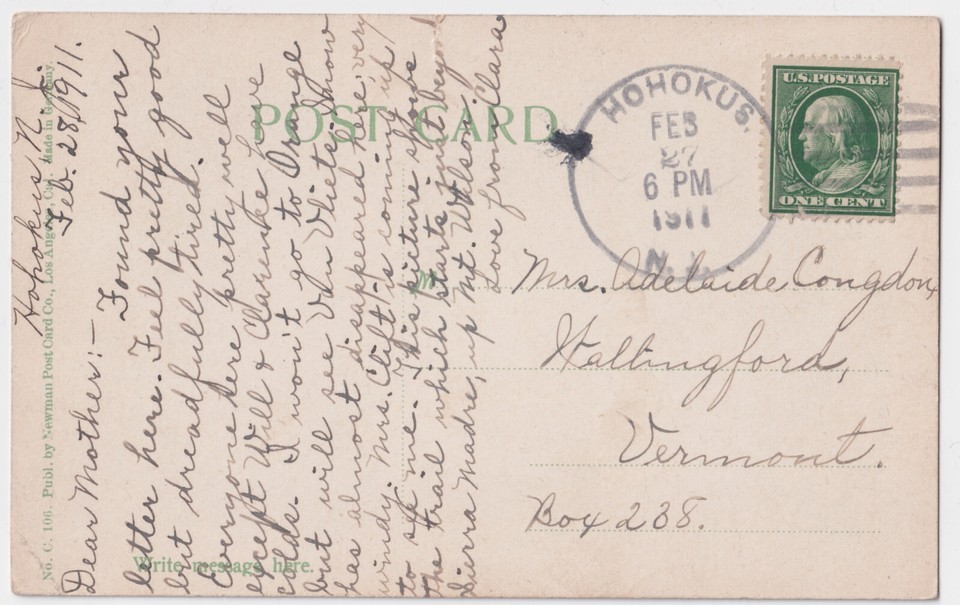 POST CARD
No. C. 106. Publ. by Newman Post Card Co., Los Angeles, Cal. Made in Germany.
Write message here.
Hohokus N.J.
Feb. 28, 1911.
Dear Mother:—
Found your
letter here. Feel pretty good
but dreadfully tired.
Everyone here pretty well
except Will & Clarence have
colds. I won't go to Orange
but will see Van Vliets. Snow
has almost disappeared here. very
windy. Mrs. Clift is coming up
to see me. This picture shows
the trail which starts just bey
Sierra Madre, up Mt. Wilson.
Love from Clara
HOHOKUS,
FEB
27
6 PM
1911
N.J.
U.S. POSTAGE
ONE CENT
M
Mrs. Adelaide Congdon,
Wallingford,
Vermont.
Box 238.